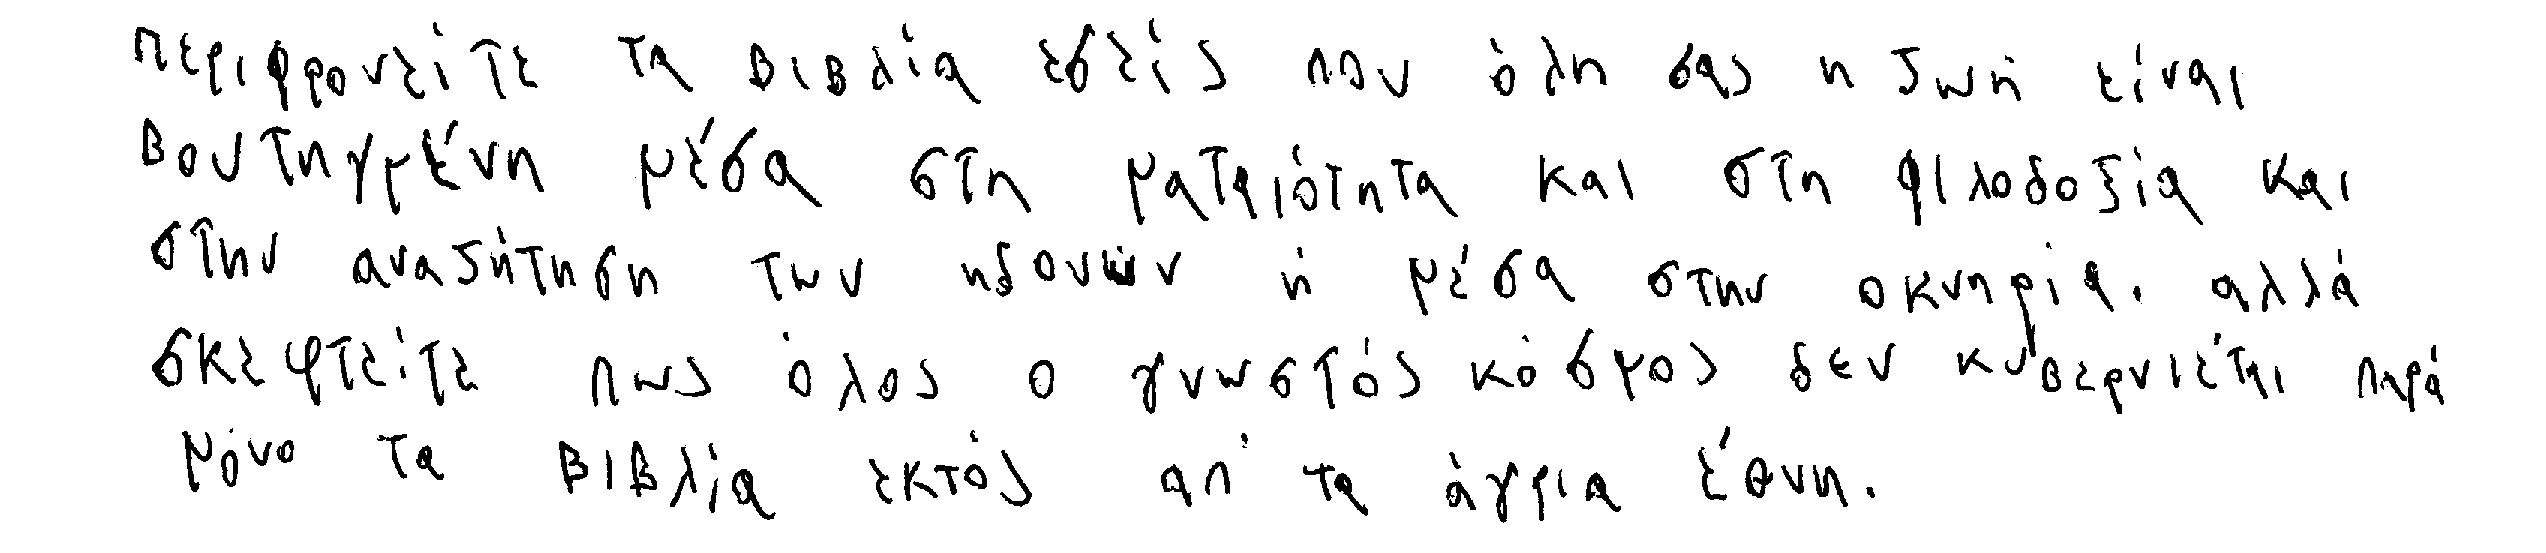 περιφρονείτε τα βιβλία εσείς που όλη σας η ζωή είναι
βουτηγμένη μέσα στη ματαιότητα και στη φιλοδοξία και
στην αναζήτηση των ηδονών ή μέσα στην οκνηρία. αλλά
σκεφτείτε πως όλος ο γνωστός κόσμος δεν κυβερνιέται παρά
μόνο τα βιβλία εκτός απ' τα άγρια έθνη.